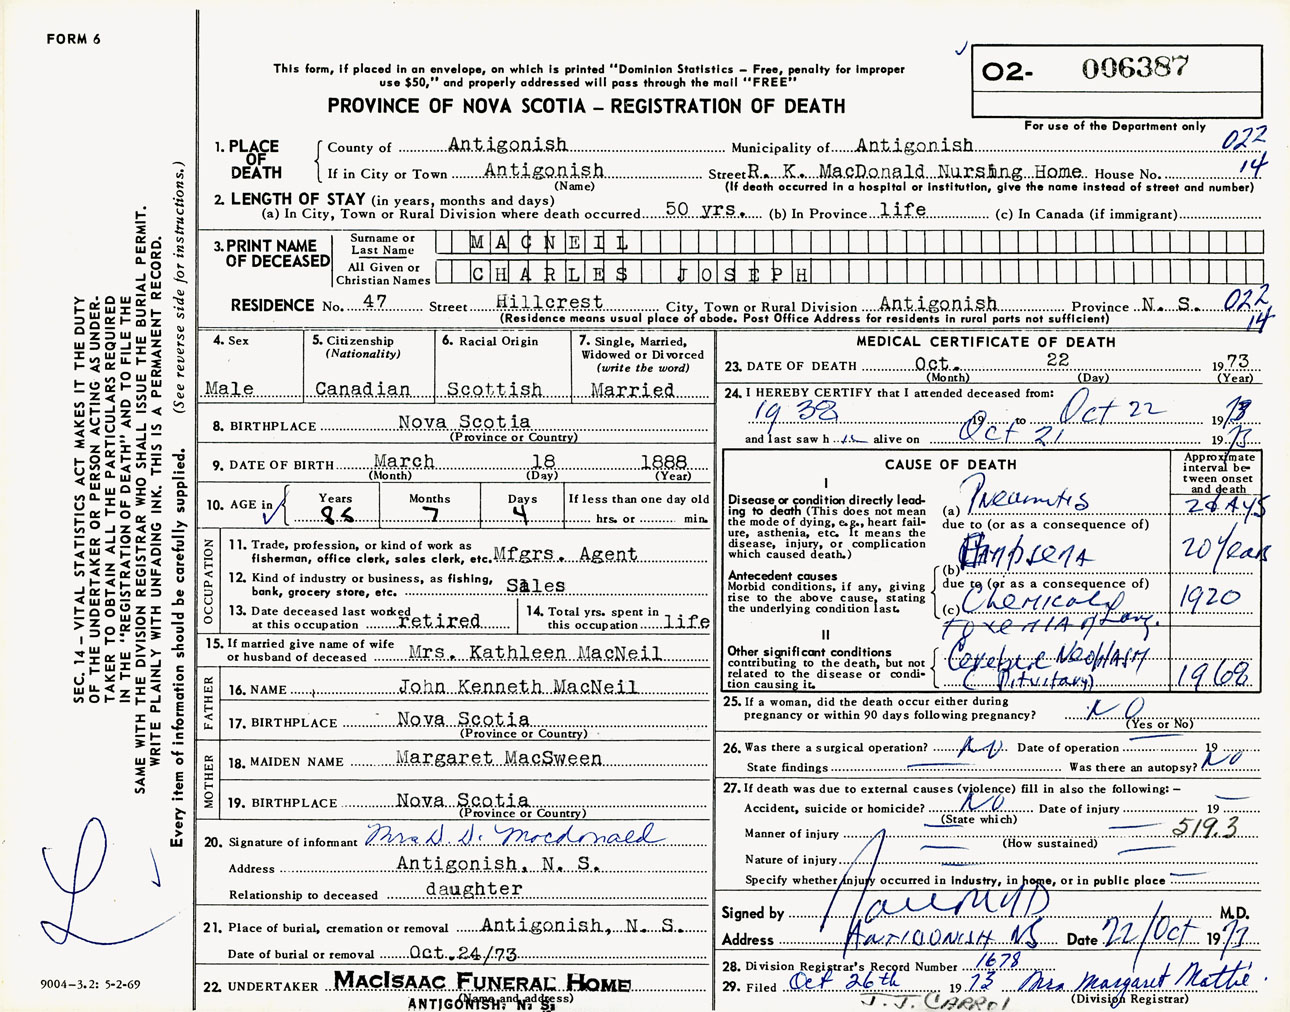 FORM 6
This form, if placed in an envelope, on which is printed "Dominion Statistics – Free, penalty for improper
use $50," and properly addressed will pass through the mail "FREE"
PROVINCE OF NOVA SCOTIA – REGISTRATION OF DEATH
O2- 006387
For use of the Department only
SEC. 14 – VITAL STATISTICS ACT MAKES IT THE DUTY
OF THE UNDERTAKER OR PERSON ACTING AS UNDER-
TAKER TO OBTAIN ALL THE PARTICULARS REQUIRED
IN THE "REGISTRATION OF DEATH" AND TO FILE THE
SAME WITH THE DIVISION REGISTRAR WHO SHALL ISSUE THE BURIAL PERMIT.
WRITE PLAINLY WITH UNFADING INK. THIS IS A PERMANENT RECORD.
Every item of information should be carefully supplied. (See reverse side for instructions.)
1. PLACE OF DEATH
County of Antigonish Municipality of Antigonish 022
If in City or Town Antigonish Street R. K. MacDonald Nursing Home House No. 14
(Name) (If death occurred in a hospital or institution, give the name instead of street and number)
2. LENGTH OF STAY (in years, months and days)
(a) In City, Town or Rural Division where death occurred 50 yrs. (b) In Province life (c) In Canada (if immigrant)
3. PRINT NAME OF DECEASED
Surname or Last Name MACNEIL
All Given or Christian Names CHARLES JOSEPH
RESIDENCE No. 47 Street Hillcrest City, Town or Rural Division Antigonish Province N. S. 022
(Residence means usual place of abode. Post Office Address for residents in rural parts not sufficient) 14
4. Sex
Male
5. Citizenship
(Nationality)
Canadian
6. Racial Origin
Scottish
7. Single, Married,
Widowed or Divorced
(write the word)
Married
8. BIRTHPLACE Nova Scotia
(Province or Country)
9. DATE OF BIRTH March 18 1888
(Month) (Day) (Year)
10. AGE in
Years Months Days If less than one day old
7 4 hrs. or min.
OCCUPATION
11. Trade, profession, or kind of work as
fisherman, office clerk, sales clerk, etc. Mfgrs. Agent
12. Kind of industry or business, as fishing,
bank, grocery store, etc. Sales
13. Date deceased last worked
at this occupation retired
14. Total yrs. spent in
this occupation life
15. If married give name of wife
or husband of deceased Mrs. Kathleen MacNeil
FATHER
16. NAME John Kenneth MacNeil
17. BIRTHPLACE Nova Scotia
(Province or Country)
MOTHER
18. MAIDEN NAME Margaret MacSween
19. BIRTHPLACE Nova Scotia
(Province or Country)
20. Signature of informant Mrs D. D. Macdonald
Address Antigonish, N. S.
Relationship to deceased daughter
21. Place of burial, cremation or removal Antigonish, N. S.
Date of burial or removal Oct.24/73
22. UNDERTAKER MACISAAC FUNERAL HOME
(Name and address)
ANTIGONISH, N. S.
9004–3.2: 5-2-69
MEDICAL CERTIFICATE OF DEATH
23. DATE OF DEATH Oct. 22 1973
(Month) (Day) (Year)
24. I HEREBY CERTIFY that I attended deceased from:
1938 19 to Oct 22 1973
and last saw h im alive on Oct 21 1973
CAUSE OF DEATH
Approximate interval between onset and death
I
Disease or condition directly lead-
ing to death (This does not mean
the mode of dying, e.g., heart fail-
ure, asthenia, etc. It means the
disease, injury, or complication
which caused death.)
(a) 2 DAYS
due to (or as a consequence of)
Antecedent causes
Morbid conditions, if any, giving
rise to the above cause, stating
the underlying condition last.
(b) 20 Years
due to (or as a consequence of)
(c) Chemical 1920
of Lung.
II
Other significant conditions
contributing to the death, but not
related to the disease or condi-
tion causing it.
Neoplasm
(Pituitary) 1968
25. If a woman, did the death occur either during
pregnancy or within 90 days following pregnancy? NO
(Yes or No)
26. Was there a surgical operation? No Date of operation 19
State findings Was there an autopsy? No
27. If death was due to external causes (violence) fill in also the following: –
Accident, suicide or homicide? NO Date of injury 19
(State which)
Manner of injury 519.3
(How sustained)
Nature of injury
Specify whether injury occurred in industry, in home, or in public place
Signed by M.D.
Address ANTIGONISH NS Date 22/Oct 1973
28. Division Registrar's Record Number 1678
29. Filed Oct 26th 1973 Mrs Margaret Mattie
(Division Registrar)
J. J. CARROL